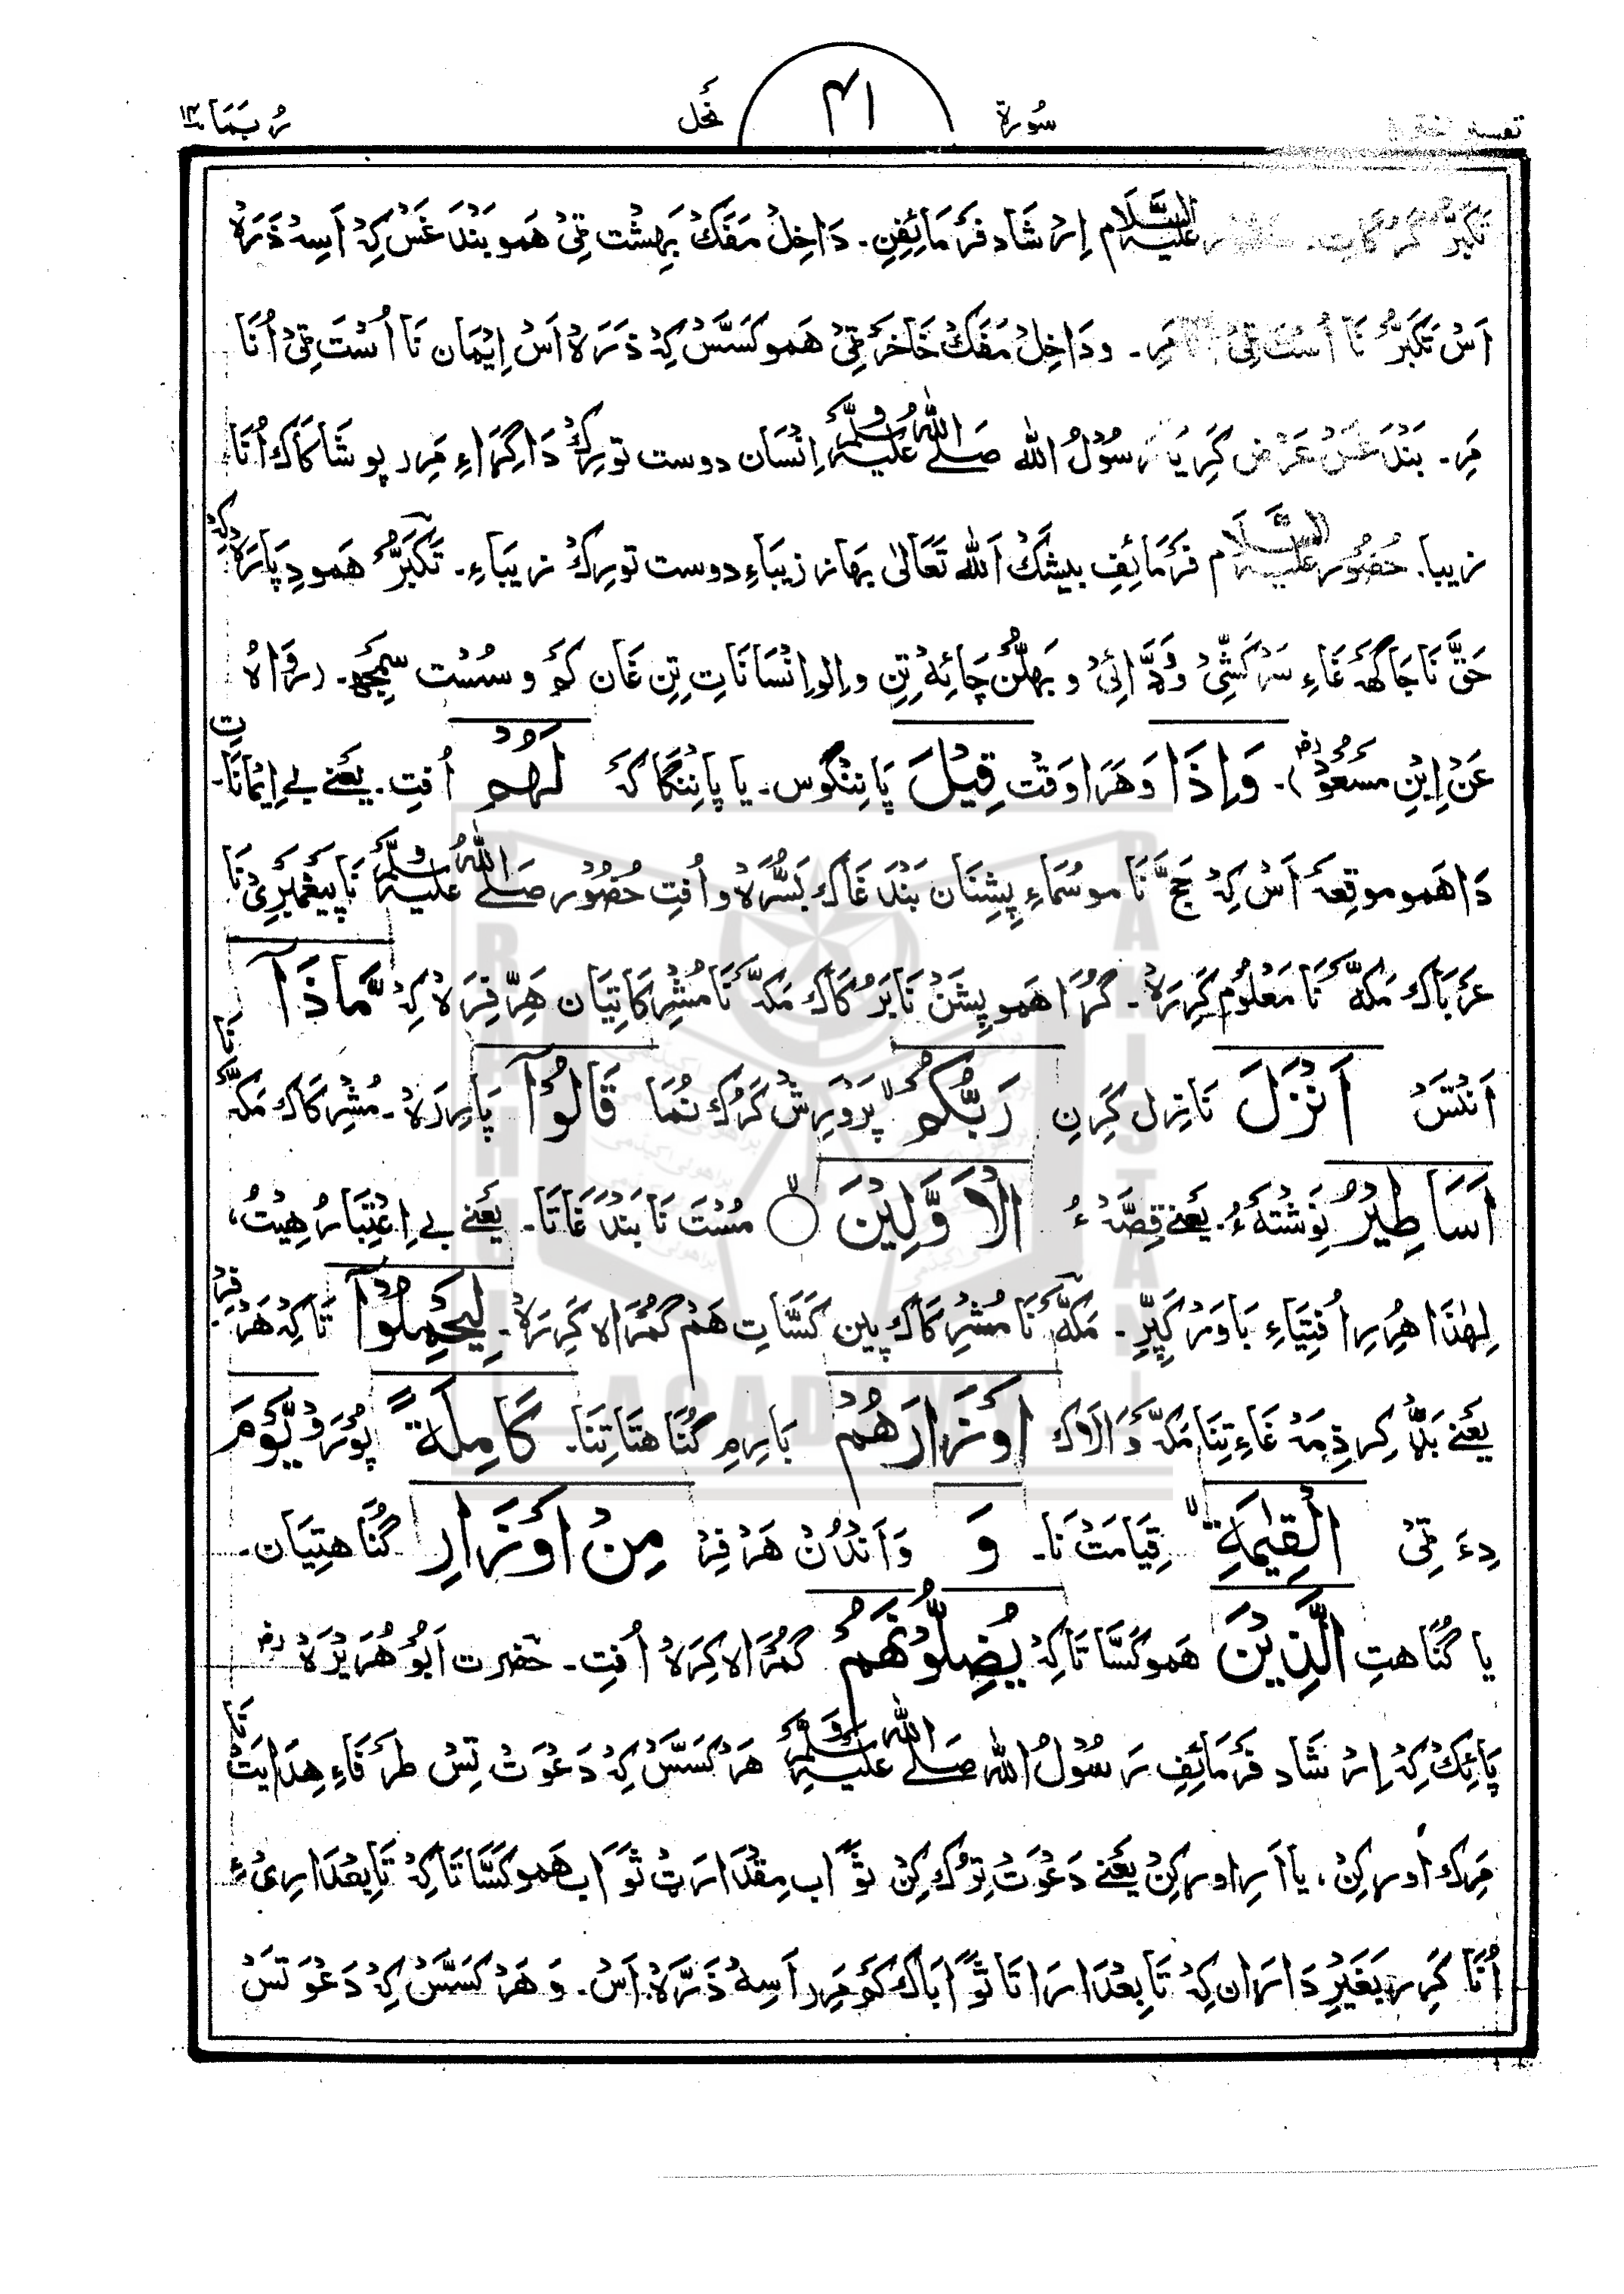 سُورة ٤١ نَحل رُبَمَا ١٤
تَكَبُّر عَلَیهِ السَّلَام اِرشَاد فَرمَائِفِن۔ دَاخِل مَفَک بَہِشت ٹِی ھَمو بَندَغَس کِہ اَسِہ ذَرَہ
اَس تَکَبُّر نَا اُست ٹِی مَرِ۔ و دَاخِل مَفَک خَاخَر ٹِی ھَمو کَسَّس کِہ ذَرَہ اَس اِیمَان نَا اُست ٹِی اُنَا
مَرِ۔ بَندَغَس عَرض کَرِ یَا رَسُولُ اللّٰہ صَلَے اللّٰہُ عَلَیہِ وَسَلَّمَ اِنسَان دوست تورِک دَا کِہ گُرَاءِ مَرِر پوشَاکَاک اُنَا
زیبا۔ حُضُور عَلَیہِ السَّلَام فَرمَائِفِ بیشَک اَللّٰہ تَعَالٰی بَھاز زیبَاءِ دوست تورِک زیبَاءِ۔ تَکَبُّر ھَمودِ پَارَہ کِہ
حَقّ نَا جَاگَہ غَاءِ سَرکَشِّی وَ وَڈَّائِی و بَھلُّن چَائِہ تِن و اِلو اِنسَانَاتِ تِن غَان کَم و سُست سَمجِھ۔ (رَوَاہُ
عَن اِبنِ مَسعُودؓ)۔ وَاِذَا وَ ھَرَا وَقت قِیلَ پَانِنگوس۔ یا پَانِنگَا کَہ لَهُم اُفتِ۔ یَعنے بے اِیمَانَاتِ۔
دَا ھَمو موقِعہ اَس کِہ حَجّ نَا موسُمَاءِ پِیشِنَان بَندَغَاک بَسُّرَہ و اُفتِ حُضُور صَلَے اللّٰہُ عَلَیہِ وَسَلَّمَ نَا پَیغَمبَرِی نَا
عَرَبَاک مَکَّہ نَا مَعلُوم کَرِرَہ۔ گُڑَا ھَمو پِیشَن نَا بَرُکَاک مَکَّہ نَا مُشرِکَاتِیَان ھَرِّفِرَہ کِہ مَّاذَآ
اَنتَس اَنزَلَ نَازِل کَرِنِ رَبُّكُم پَروَرِش کَرُک نُمَا قَالُوٓا پَارِرَہ۔ مُشرِکَاک مَکَّہ نَا
اَسَاطِیرُ نِوِشتَہ ءُ۔ یَعنے قِصَّہ ءُ الاَوَّلِینَ مُست نَا بَندَغَاتَا۔ یَعنے بے اِعتِبَار ھِیت،
لِھٰذَا ھُرِر اُفتِیَاءِ بَاوَر کَپِّر۔ مَکَّہ نَا مُشرِکَاک پین کَسَّاتِ ھَم گُمرَاہ کَرِرَہ۔ لِیَحمِلُوٓا تَا کِہ ھَرفِر
یَعنے بَلَّا کِر ذِمَہ غَاءِ تِنَا مَکَّہ وَالَاک اَوزَارَهُم بَارِمِ گُنَاھتَا تِنَا۔ كَامِلَةً پُورَو یَّومَ
دِءَ ٹِی القِیٰمَةِ قِیَامَت نَا۔ وَ وَ اَندُن ھَرفِر مِن اَوزَارِ گُنَاھتِیَان۔
یا گُنَاھتِ الَّذِینَ ھَمو کَسَّاتَا کِہ یُضِلُّونَهُم گُمرَاہ کِرَہ اُفتِ۔ حَضرت اَبُو ھُرَیرَہؓ
پَائِک کِہ اِرشَاد فَرمَائِفِ رَسُولُ اللّٰہ صَلَے اللّٰہُ عَلَیہِ وَسَلَّمَ ھَر کَسَّس کِہ دَعوَت تِس طَرَفَاءِ ھِدَایَت نَا
مَرِک اُورکِن، یا اَرِ اورکِن یَعنے دَعوَت تِرُک کِن ثَوَاب مِقدَارَٹ ثَوَاب ھَمو کَسَّاتَا کِہ تَابِعدَارِی ءِ
اُنَا کَرِر بَغَیر دَارَان کِہ تَابِعدَارَاتَا ثَوَابَاک کَم مَرِر اَسِہ ذَرَّہ اَس۔ وَ ھَر کَسَّس کِہ دَعوَتَس